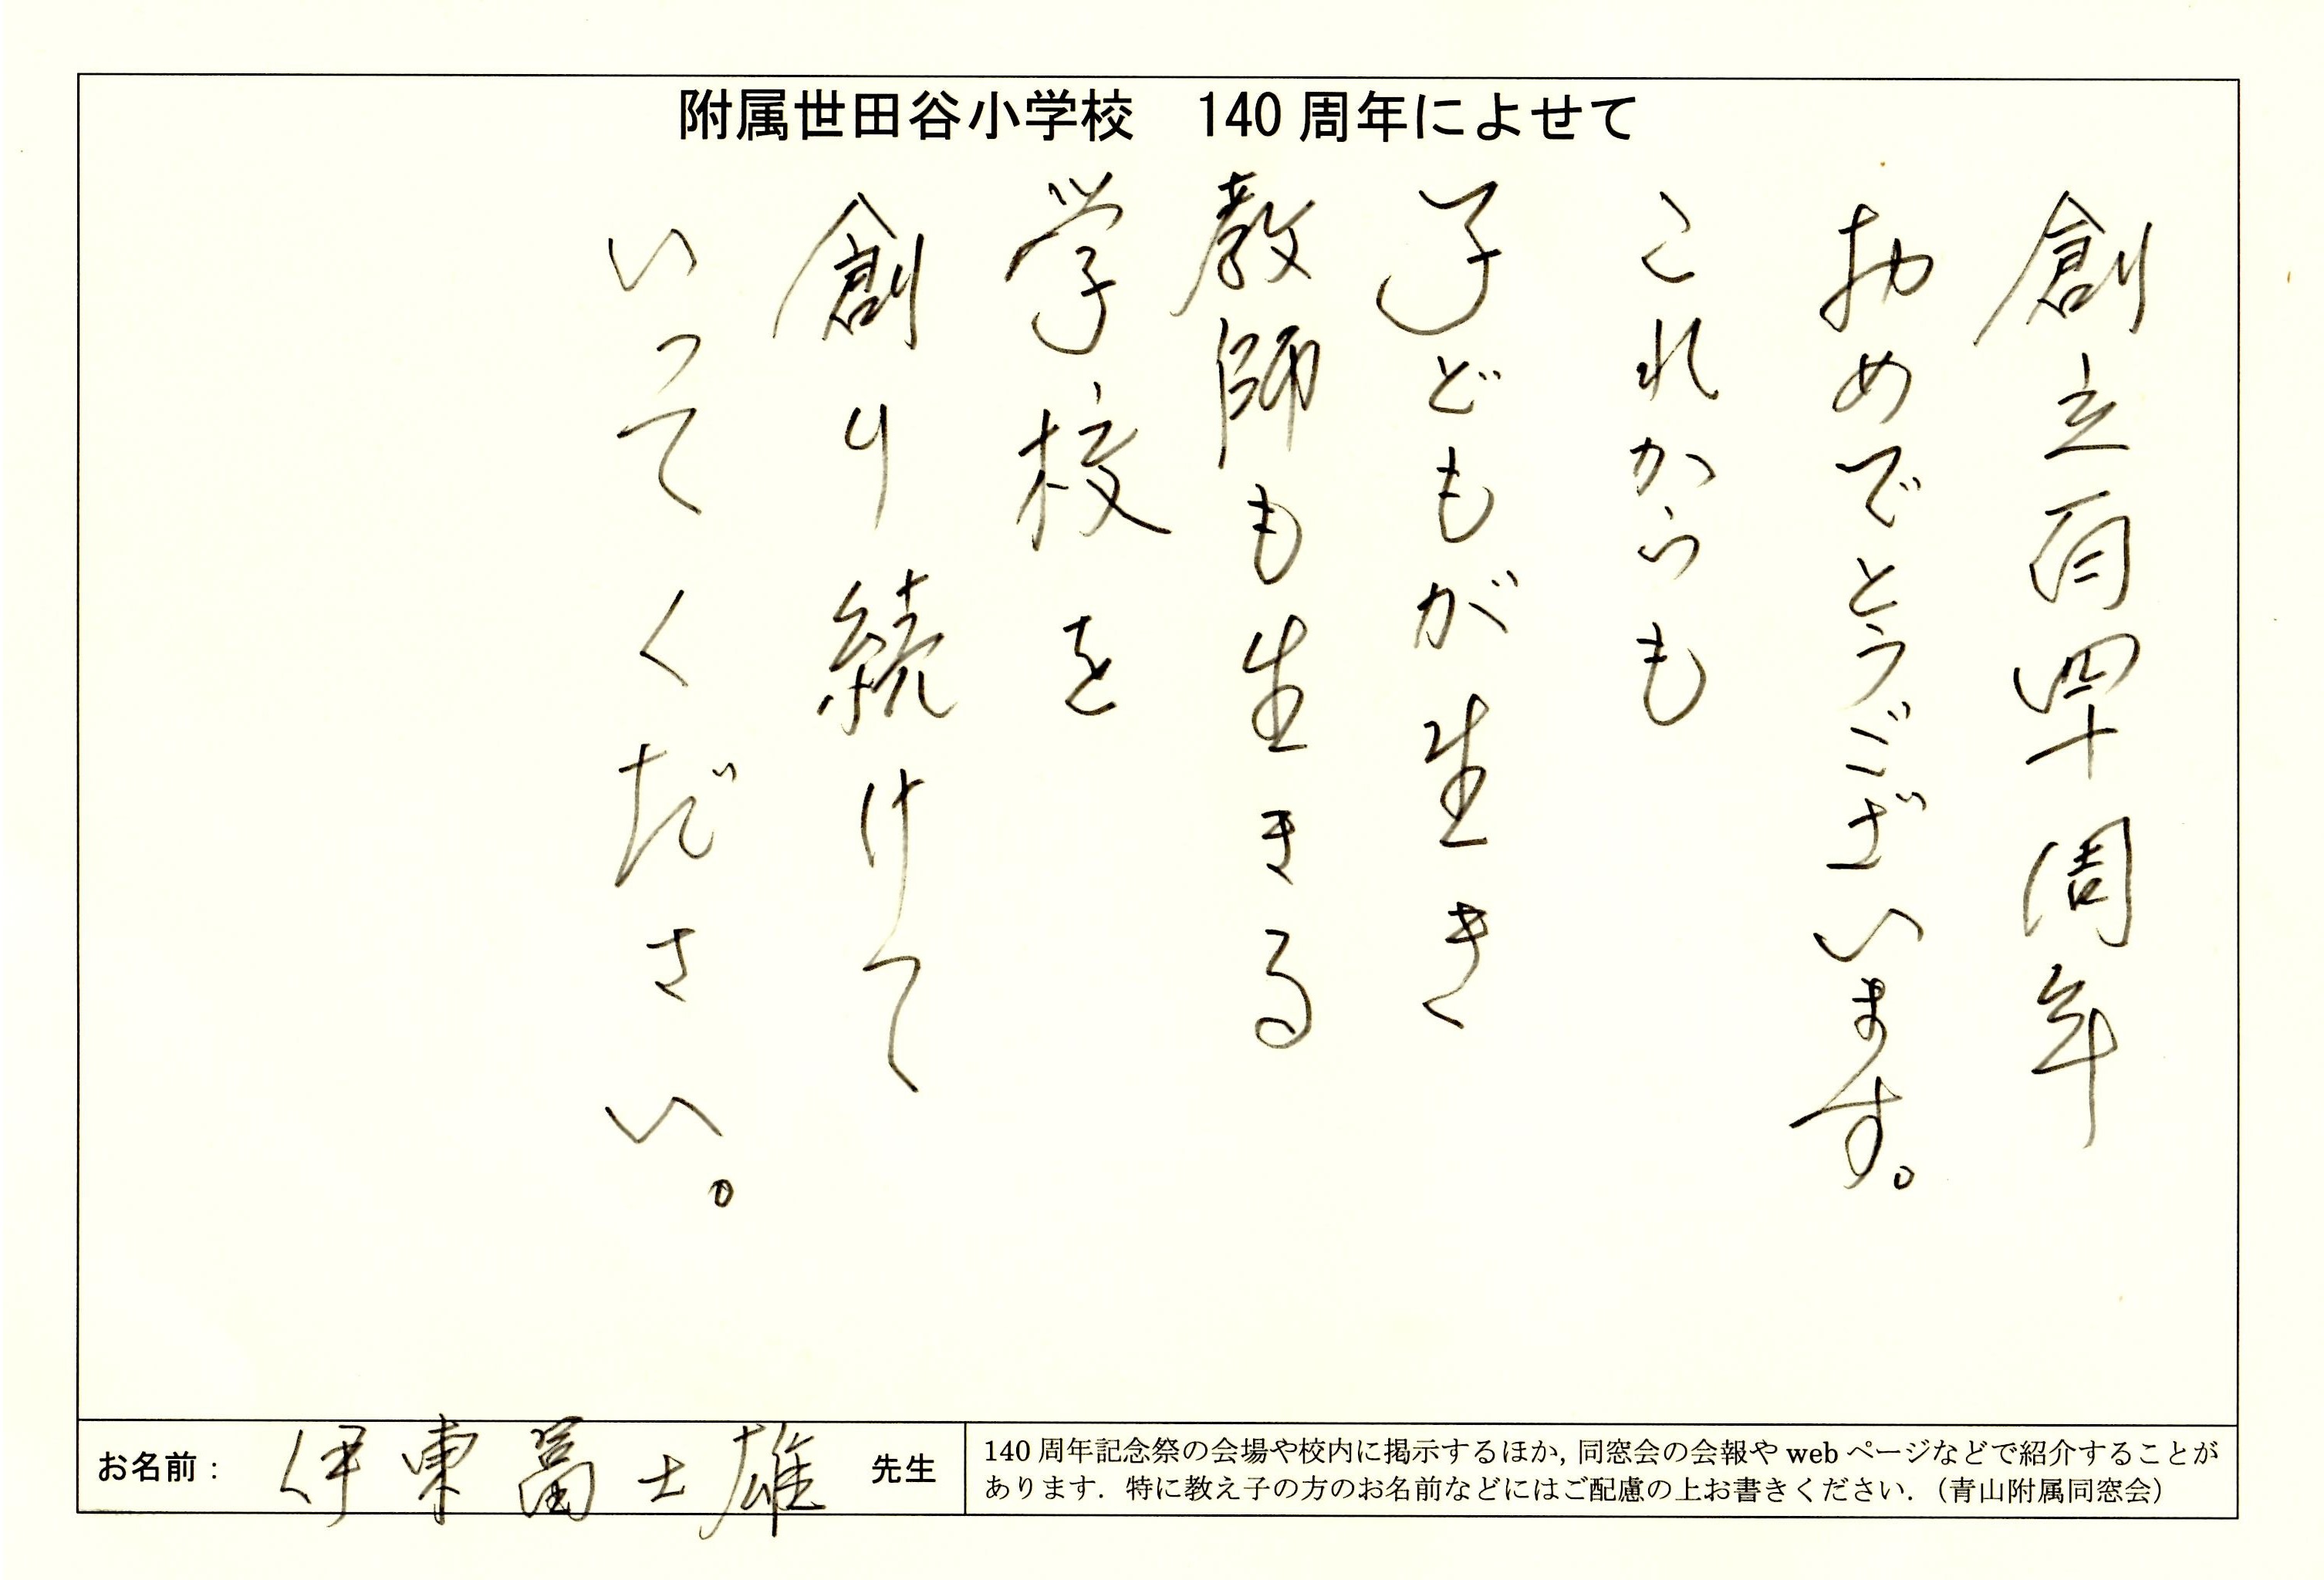 附属世田谷小学校　140 周年によせて
創立百四十周年
おめでとうございます。
これからも
子どもが生き
教師も生きる
学校を
創り続けて
いってください。
お名前： 伊東冨士雄 先生
140 周年記念祭の会場や校内に掲示するほか, 同窓会の会報や web ページなどで紹介することが
あります． 特に教え子の方のお名前などにはご配慮の上お書きください．（青山附属同窓会）